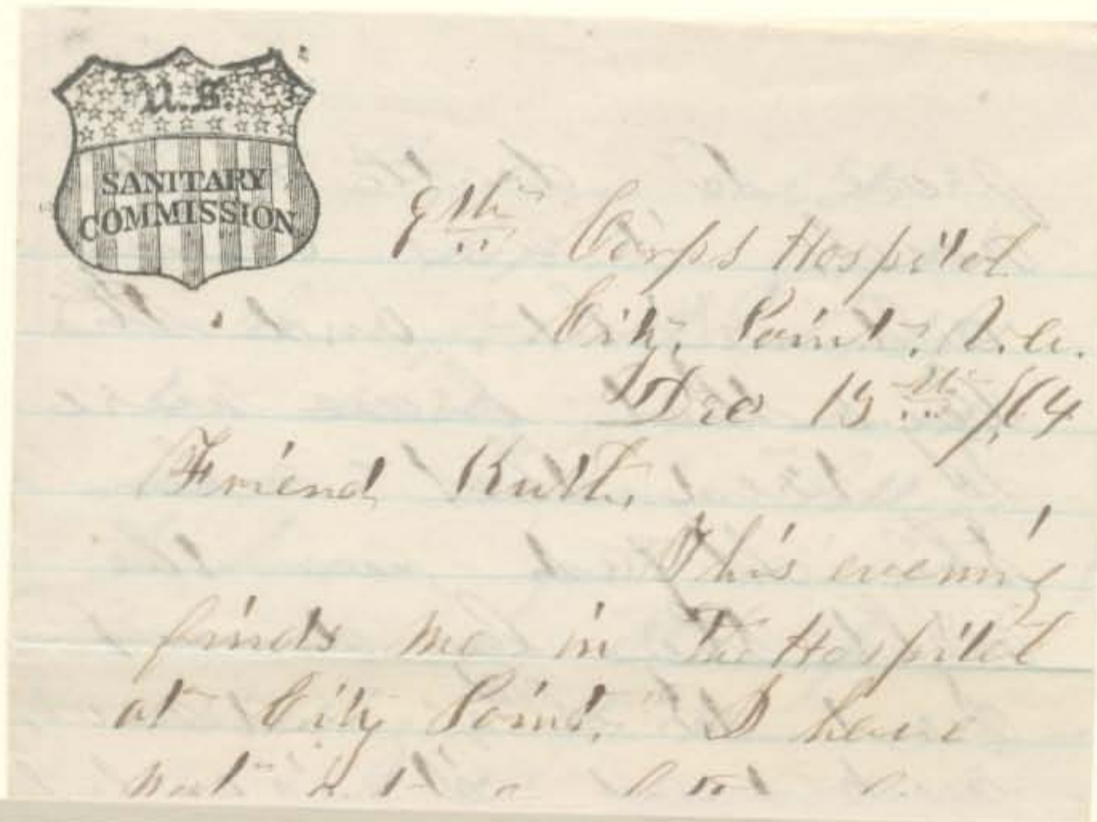 U.S.
SANITARY
COMMISSION
9th Corps Hospital
City Point, V.a.
Dec 15th /64
Friend Ruth,
This evening
finds me in The Hospital
at City Point, I have
not